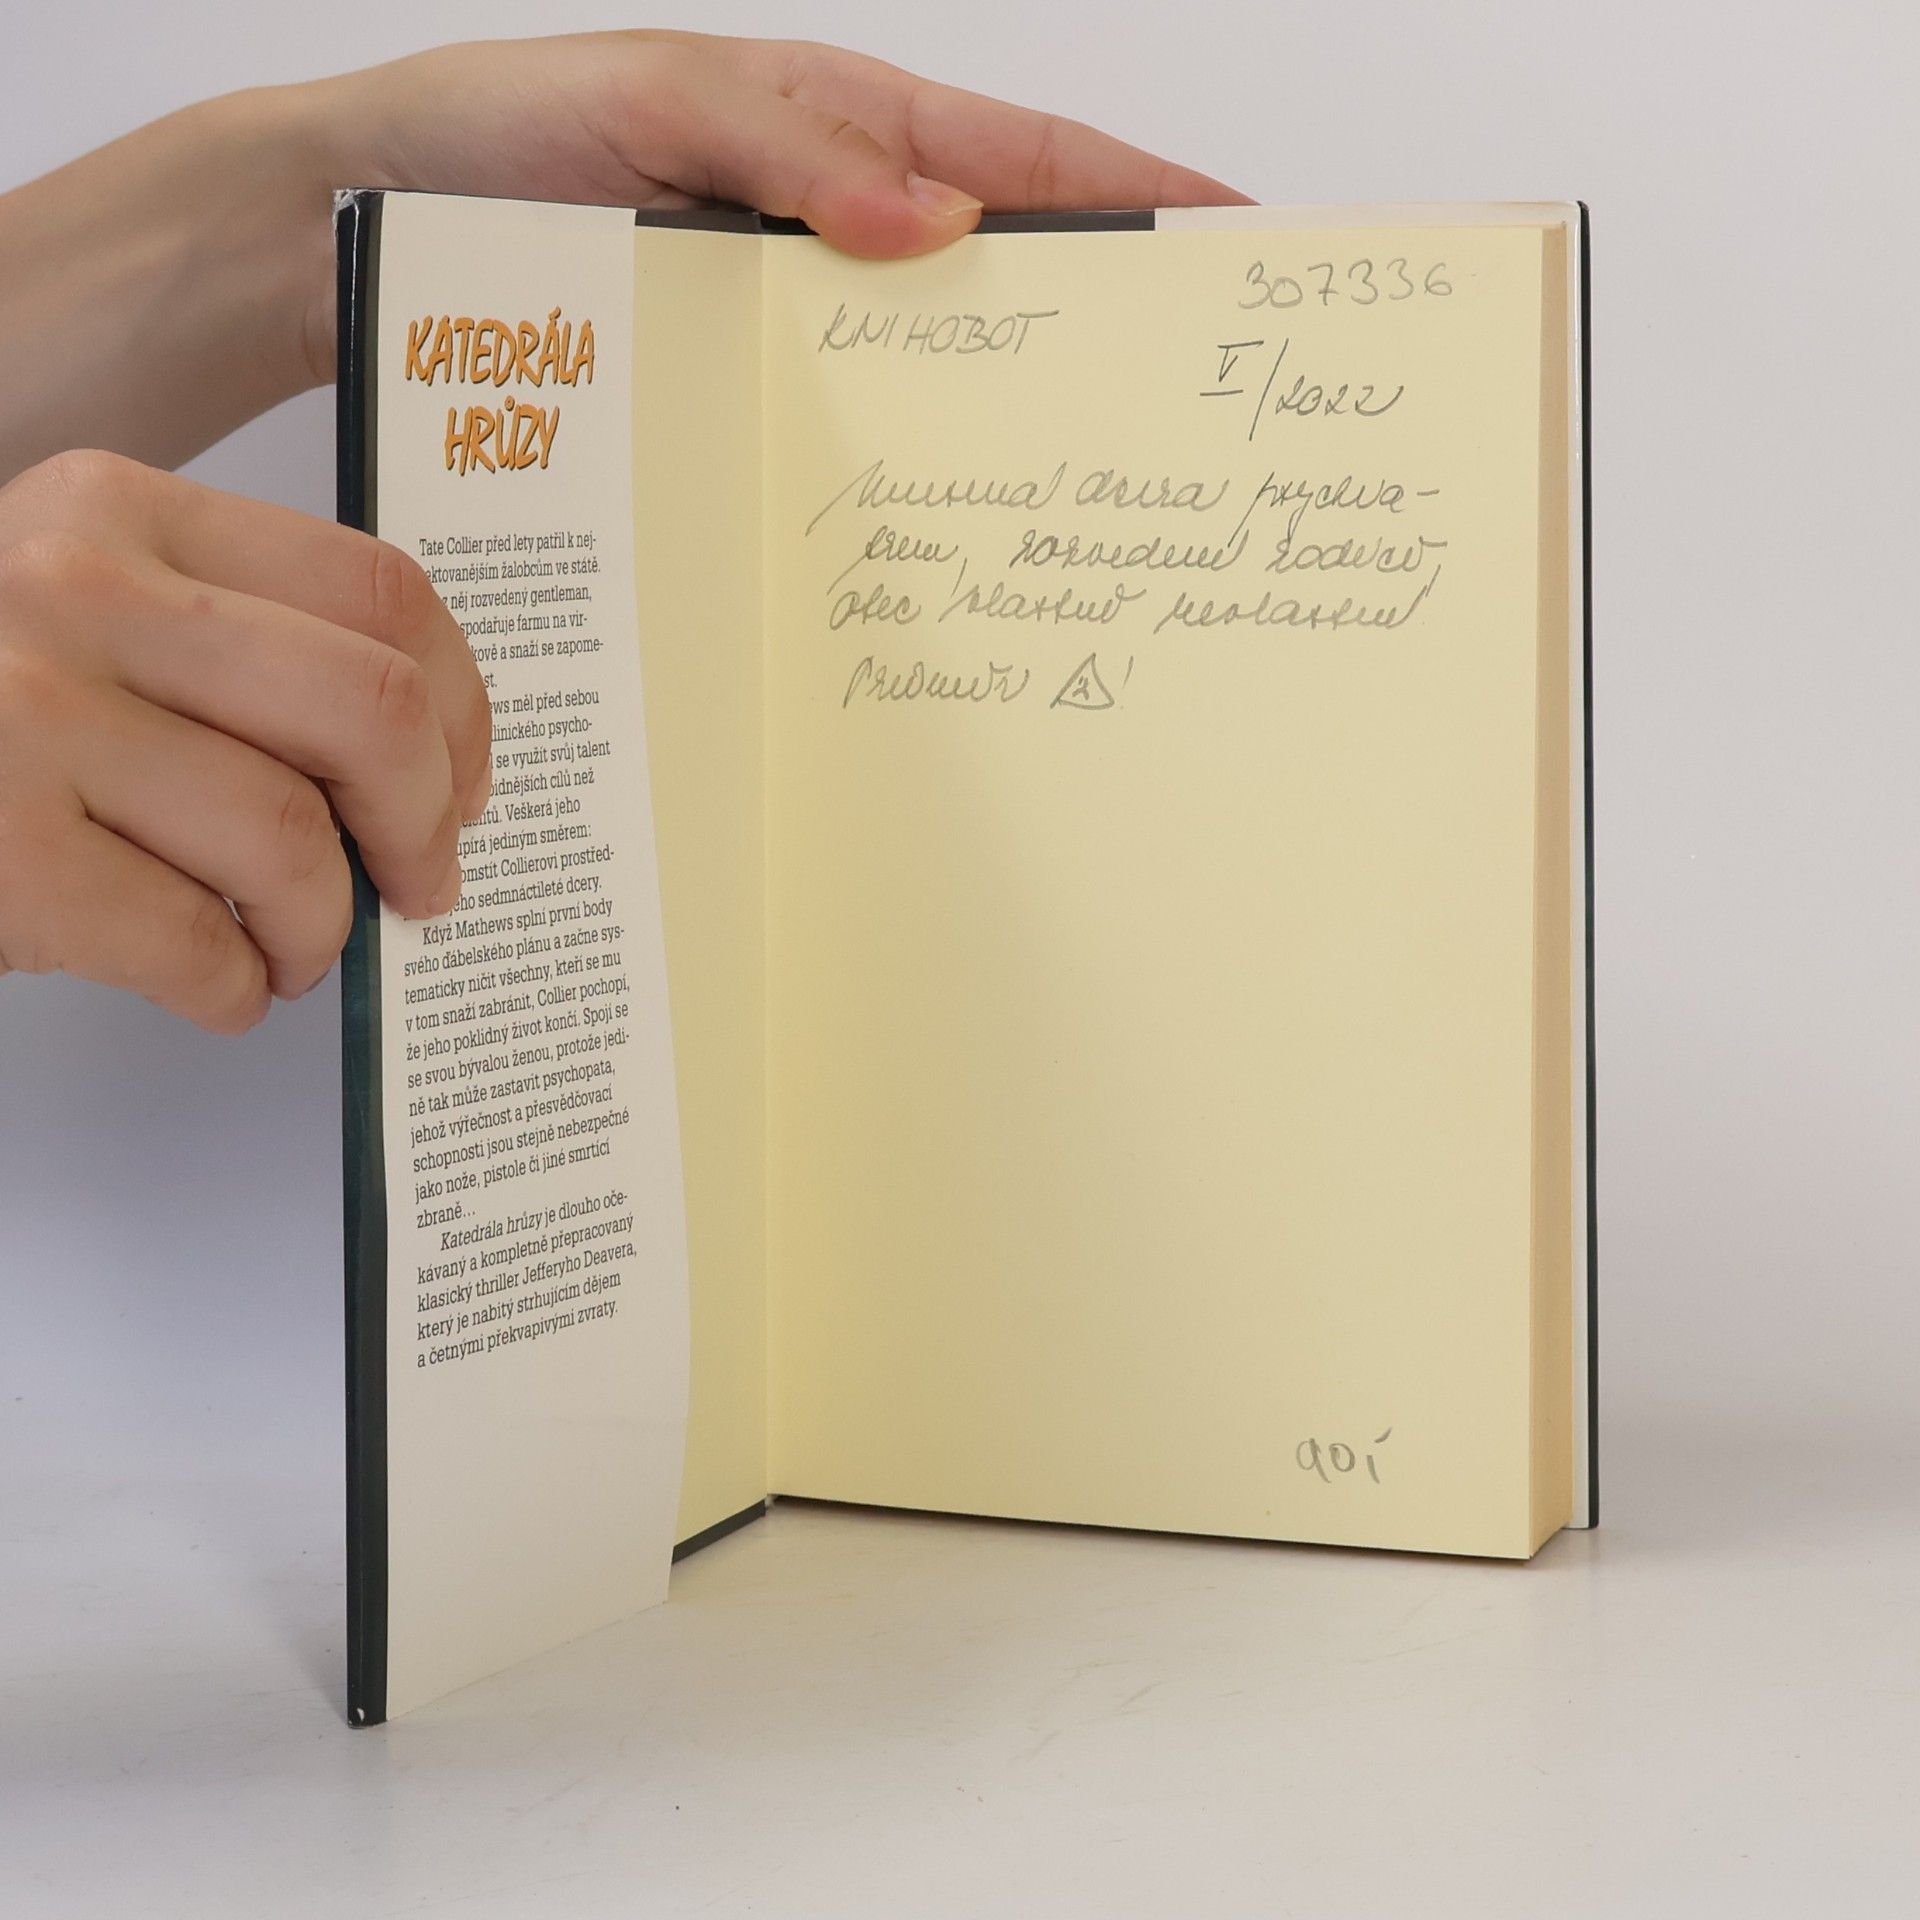 KATEDRÁLA
HRŮZY
Tate Collier před lety patřil k nej-
ektovanějším žalobcům ve státě.
z něj rozvedený gentleman,
spodařuje farmu na vir-
kově a snaží se zapome-
st.
ews měl před sebou
linického psycho-
l se využít svůj talent
bidnějších cílů než
cientů. Veškerá jeho
upírá jediným směrem:
omstít Collierovi prostřed-
jeho sedmnáctileté dcery.
Když Mathews splní první body
svého ďábelského plánu a začne sys-
tematicky ničit všechny, kteří se mu
v tom snaží zabránit, Collier pochopí,
že jeho poklidný život končí. Spojí se
se svou bývalou ženou, protože jedi-
ně tak může zastavit psychopata,
jehož výřečnost a přesvědčovací
schopnosti jsou stejně nebezpečné
jako nože, pistole či jiné smrtící
zbraně...
Katedrála hrůzy je dlouho oče-
kávaný a kompletně přepracovaný
klasický thriller Jefferyho Deavera,
který je nabitý strhujícím dějem
a četnými překvapivými zvraty.
307336
KNIHOBOT
V/2022
Unesená dcera psychia-
trem, rozvedení rodiče,
otec vlastně nevlastní
Průměr 2!